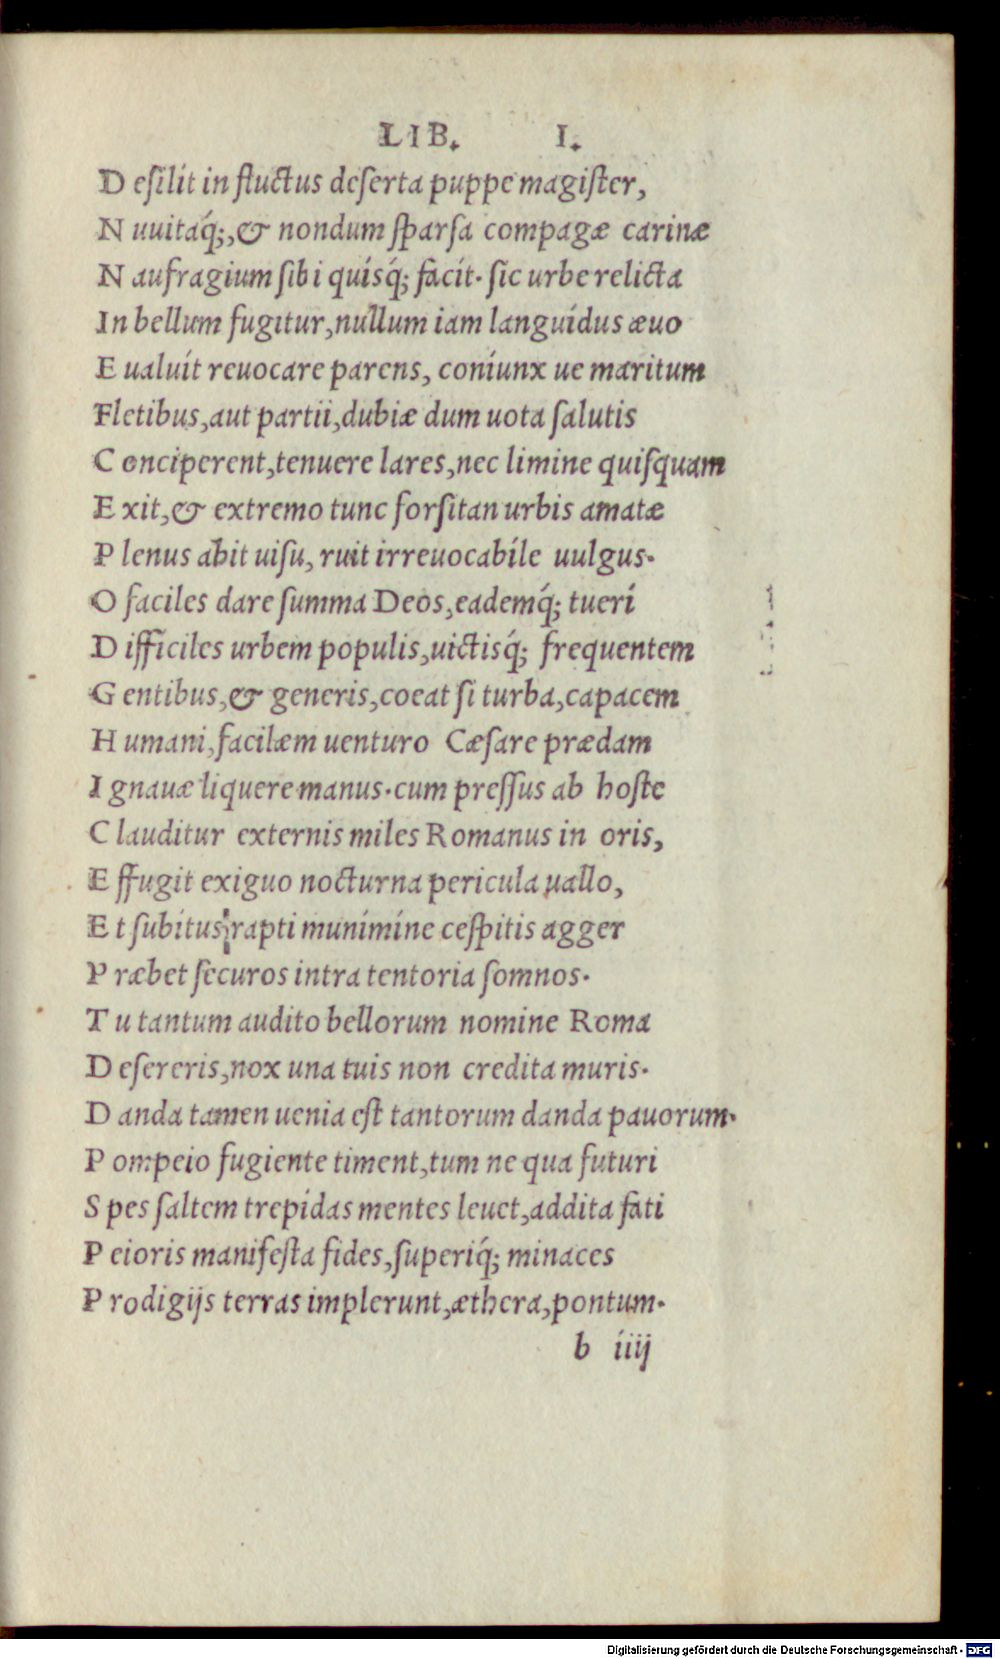 LIB. I.
D esilit in fluctus deserta puppe magister,
N uuitaq́;,& nondum sparsa compagæ carinæ
N aufragium sibi quisq́; facit. sic urbe relicta
In bellum fugitur, nullum iam languidus æuo
E ualuit reuocare parens, coniunx ue maritum
Fletibus, aut partii, dubiæ dum uota salutis
C onciperent, tenuere lares, nec limine quisquam
E xit,& extremo tunc forsitan urbis amatæ
P lenus abit uisu, ruit irreuocabile uulgus.
O faciles dare summa Deos, eademq́; tueri
D ifficiles urbem populis, uictisq́; frequentem
G entibus,& generis, coeat si turba, capacem
H umani, facilæm uenturo Cæsare prædam
I gnauæ liquere manus. cum pressus ab hoste
C lauditur externis miles Romanus in oris,
E ffugit exiguo nocturna pericula uallo,
E t subitus rapti munimine cespitis agger
P ræbet securos intra tentoria somnos.
T u tantum audito bellorum nomine Roma
D esereris, nox una tuis non credita muris.
D anda tamen uenia est tantorum danda pauorum.
P ompeio fugiente timent, tum ne qua futuri
S pes saltem trepidas mentes leuet, addita fati
P eioris manifesta fides, superiq́; minaces
P rodigijs terras implerunt, æthera, pontum.
b iiij
Digitalisierung gefördert durch die Deutsche Forschungsgemeinschaft - DFG